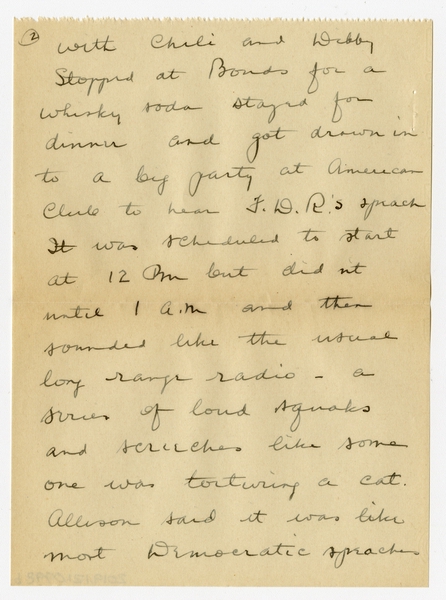 (2)
with Chili and Debby
Stopped at Bonds for a
whisky soda stayed for
dinner and got drawn in
to a big party at American
Club to hear F.D.R.'s speach
It was scheduled to start
at 12 Pm but did nt
until 1 a.m and then
sounded like the usual
long range radio - a
series of loud squaks
and scrieches like some
one was torturing a cat.
Allison said it was like
most Democratic speaches